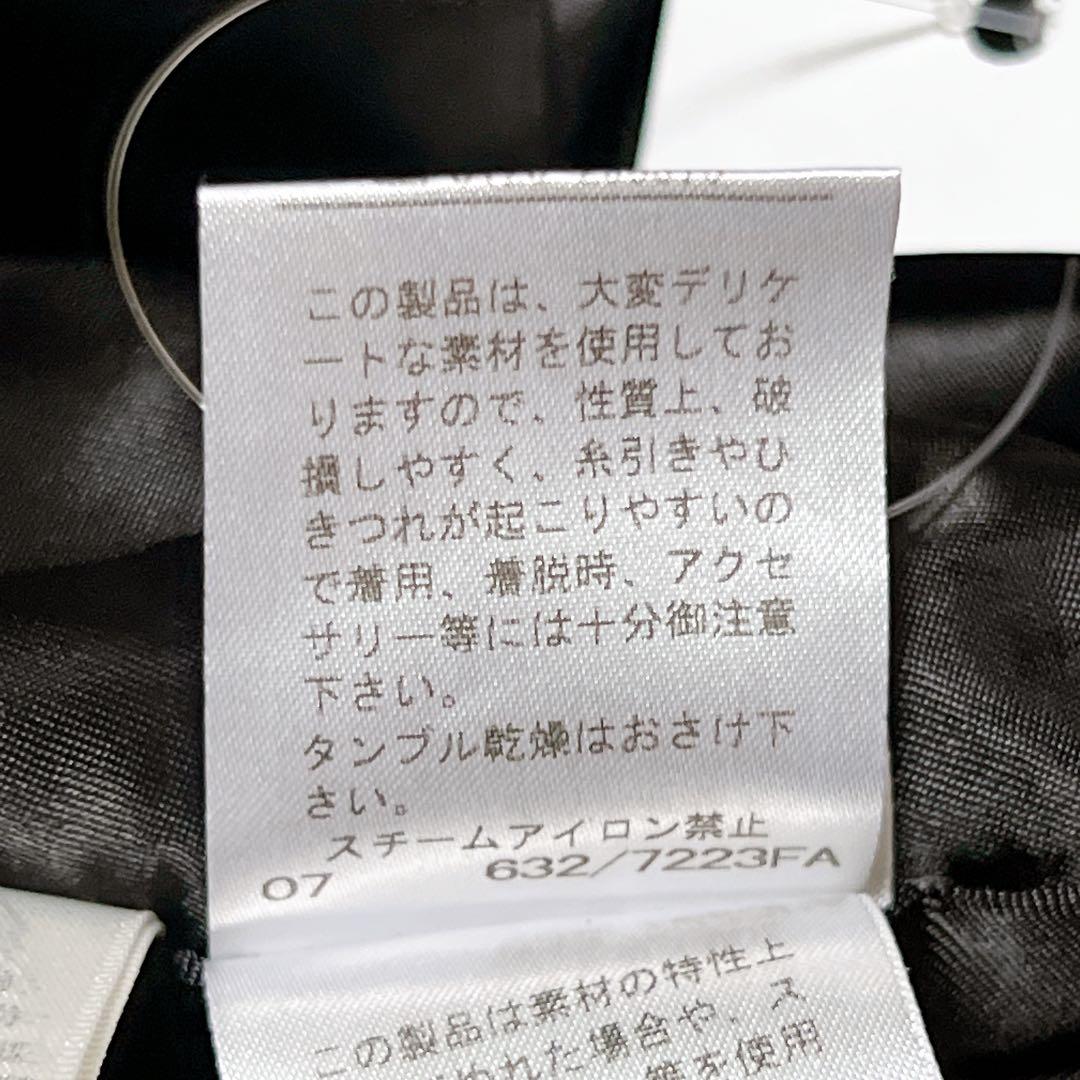 この製品は、大変デリケ
ートな素材を使用してお
りますので、性質上、破
損しやすく、糸引きやひ
きつれが起こりやすいの
で着用、着脱時、アクセ
サリー等には十分御注意
下さい。
タンブル乾燥はおさけ下
さい。
スチームアイロン禁止
07 632/7223FA
この製品は素材の特性上
れた場合や、ス
等を使用